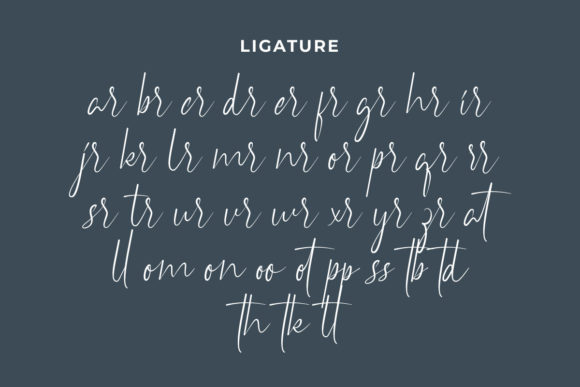 LIGATURE
ar br cr dr er fr gr hr ir
jr kr lr mr nr or pr qr rr
sr tr ur vr wr xr yr zr at
ll om on oo ot pp ss tb td
th tk tt